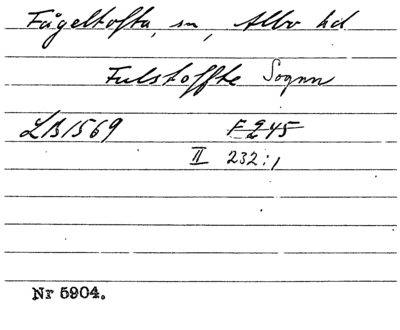 Fågeltofta, sn, Albo hd
Fulstoffte Sognn
LB 1569 F 2 45
II 232:1
Nr 5904.